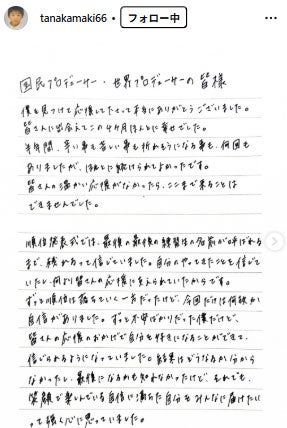 tanakamaki66 • フォロー中
国民プロデューサー・世界プロデューサーの皆様
僕を見つけて応援してくださって本当にありがとうございました。
皆さんに出会えてこの4ヶ月ほんとに幸せでした。
半年間、辛い事も苦しい事も折れそうになる事も、何回も
ありましたが、ほんとに続けられてよかったです。
皆さんの温かい応援がなかったら、ここまで来ることは
できませんでした。
順位発表式では、最後の最後の練習生の名前が呼ばれる
まで、残るって信じていました。自分のやってきたことを信じて
いたし、何より皆さんの応援に支えられていたからです。
ずっと順位は落ちていく一方だったけど、今回だけは何故か
自信がありました。ずっと不安ばかりだった僕だけど、
皆さんの応援のおかげで自分を好きになることができて、
信じられるようになっていました。結果はどうなるか分から
なかったし、最後になるかも知れなかったけど、それでも、
笑顔で楽しんでいる自信に満ちた自分をみんなに届けたい
って強く心に思っていました。